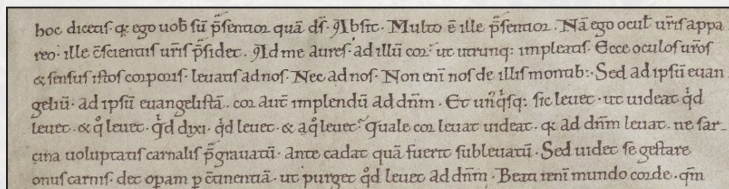 hoc dicetis· qꝛ ego uob̄ sū p̄sentior quā dſ̄· Absit. Multo ē ille p̄sentior. Nā ego oculis ur̄is appa
reo· ille c̄scientiis ur̄is p̄sidet. Ad me aures· ad illū cor· ut utrunq: impleatis. Ecce oculos ur̄os
& sensus istos corporis· leuatis ad nos· Nec ad nos· Non eni nos de illis montib:· Sed ad ipsū euan
geliū· ad ipsū euangelistā. cor aut̄ implendū ad dn̄m. Et unq̇sq: sic leuet· ut uideat q̇d
leuet· & q̊ leuet· q̇d dixi· q̇d leuet· & a q̊ leuet? Quale cor leuat uideat. qꝛ ad dn̄m leuat. ne sar-
cina uoluptatis carnalis p̄grauatū· ante cadat quā fuerit subleuatū. Sed uidet se gestare
onus carnis· det opam p c̄tinentiā· ut purget q̇d leuet ad dn̄m· Beati eni mundo corde· qm̄